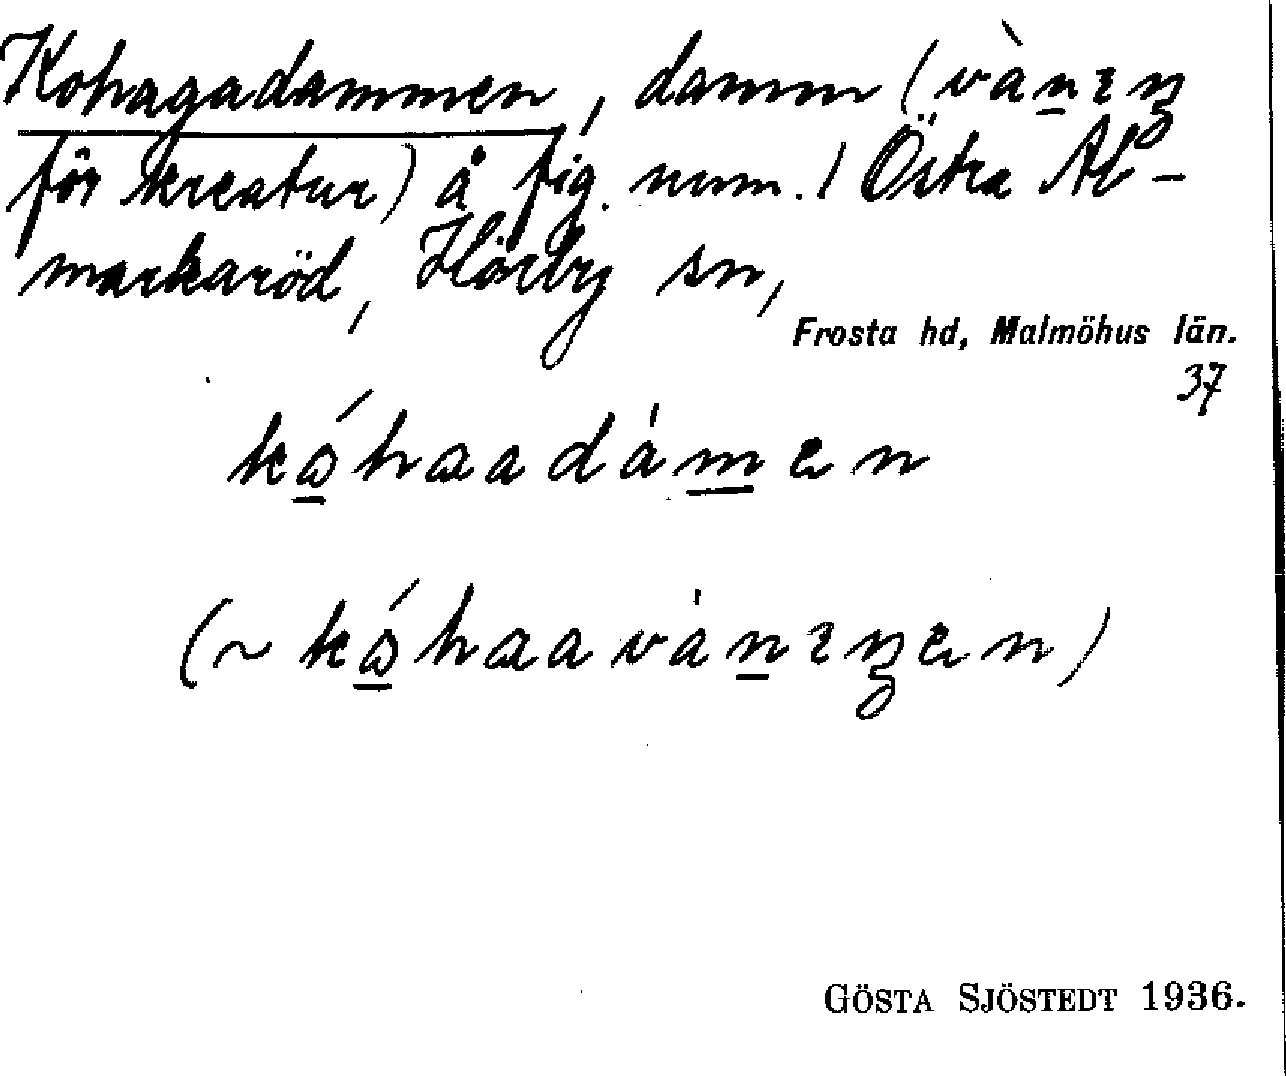 Kohagadammen, damm (vànıŋ
för kreatur) å fig. num. 1 Östra Al-
markaröd, Hörby sn,
Frosta hd, Malmöhus län.
37
kóhaadámen
(~ kóhaavánıŋen)
GÖSTA SJÖSTEDT 1936.